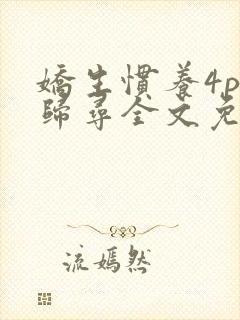 嬌生慣養4p
歸尋全文免
流嫣然